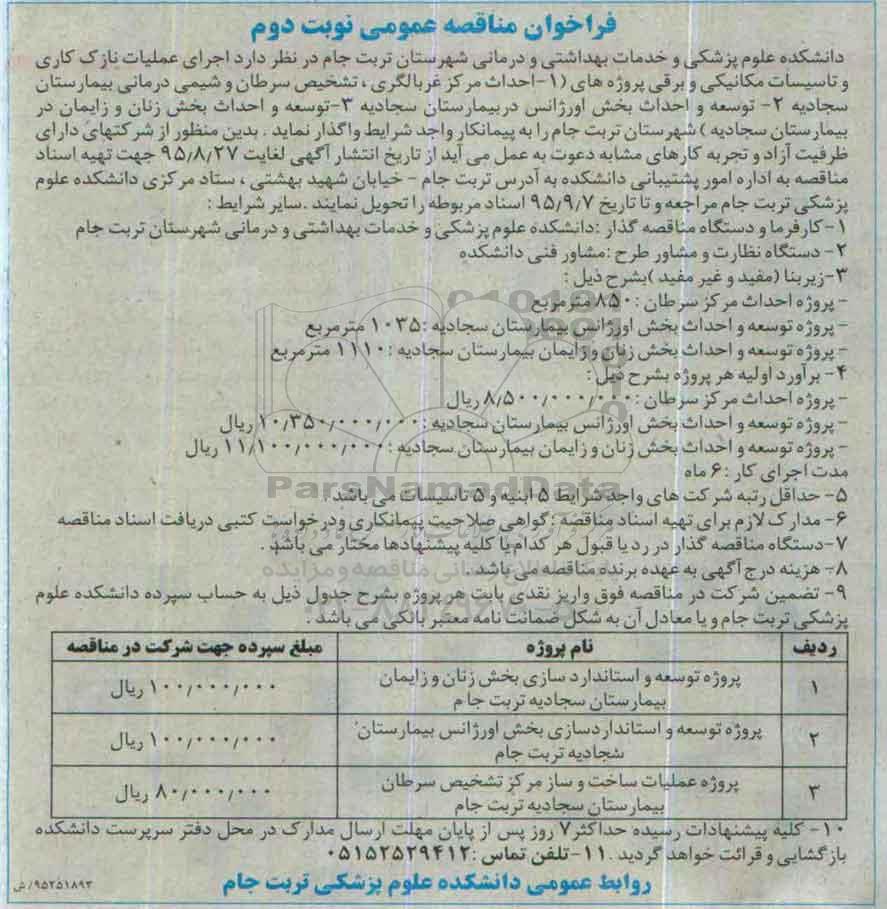 فراخوان مناقصه عمومی نوبت دوم
دانشکده علوم پزشکی و خدمات بهداشتی و درمانی شهرستان تربت جام در نظر دارد اجرای عملیات نازک کاری
و تاسیسات مکانیکی و برقی پروژه های (۱-احداث مرکز غربالگری ، تشخیص سرطان و شیمی درمانی بیمارستان
سجادیه ۲- توسعه و احداث بخش اورژانس دربیمارستان سجادیه ۳-توسعه و احداث بخش زنان و زایمان در
بیمارستان سجادیه ) شهرستان تربت جام را به پیمانکار واجد شرایط واگذار نماید . بدین منظور از شرکتهای دارای
ظرفیت آزاد و تجربه کارهای مشابه دعوت به عمل می آید از تاریخ انتشار آگهی لغایت ۹۵/۸/۲۷ جهت تهیه اسناد
مناقصه به اداره امور پشتیبانی دانشکده به آدرس تربت جام - خیابان شهید بهشتی ، ستاد مرکزی دانشکده علوم
پزشکی تربت جام مراجعه و تا تاریخ ۹۵/۹/۷ اسناد مربوطه را تحویل نمایند .سایر شرایط :
۱-کارفرما و دستگاه مناقصه گذار :دانشکده علوم پزشکی و خدمات بهداشتی و درمانی شهرستان تربت جام
۲- دستگاه نظارت و مشاور طرح :مشاور فنی دانشکده
۳-زیربنا (مفید و غیر مفید )بشرح ذیل :
- پروژه احداث مرکز سرطان : ۸۵۰ مترمربع
- پروژه توسعه و احداث بخش اورژانس بیمارستان سجادیه :۱۰۳۵ مترمربع
- پروژه توسعه و احداث بخش زنان و زایمان بیمارستان سجادیه :۱۱۱۰ مترمربع
۴- برآورد اولیه هر پروژه بشرح ذیل :
- پروژه احداث مرکز سرطان :۸/۵۰۰/۰۰۰/۰۰۰ ریال
- پروژه توسعه و احداث بخش اورژانس بیمارستان سجادیه :۱۰/۳۵۰/۰۰۰/۰۰۰ ریال
- پروژه توسعه و احداث بخش زنان و زایمان بیمارستان سجادیه :۱۱/۱۰۰/۰۰۰/۰۰۰ ریال
مدت اجرای کار :۶ ماه
ParsNamadData
۵- حداقل رتبه شرکت های واجد شرایط ۵ ابنیه و ۵ تاسیسات می باشد .
۶- مدارک لازم برای تهیه اسناد مناقصه :گواهی صلاحیت پیمانکاری ودرخواست کتبی دریافت اسناد مناقصه
۷-دستگاه مناقصه گذار در رد یا قبول هر کدام یا کلیه پیشنهادها مختار می باشد .
۸- هزینه درج آگهی به عهده برنده مناقصه می باشد .
۹- تضمین شرکت در مناقصه فوق واریز نقدی بابت هر پروژه بشرح جدول ذیل به حساب سپرده دانشکده علوم
پزشکی تربت جام و یا معادل آن به شکل ضمانت نامه معتبر بانکی می باشد .
ردیف نام پروژه مبلغ سپرده جهت شرکت در مناقصه
۱ پروژه توسعه و استاندارد سازی بخش زنان و زایمان ۱۰۰/۰۰۰/۰۰۰ ریال
بیمارستان سجادیه تربت جام
۲ پروژه توسعه و استانداردسازی بخش اورژانس بیمارستان ۱۰۰/۰۰۰/۰۰۰ ریال
سجادیه تربت جام
۳ پروژه عملیات ساخت و ساز مرکز تشخیص سرطان ۸۰/۰۰۰/۰۰۰ ریال
بیمارستان سجادیه تربت جام
۱۰- کلیه پیشنهادات رسیده حداکثر۷ روز پس از پایان مهلت ارسال مدارک در محل دفتر سرپرست دانشکده
بازگشایی و قرائت خواهد گردید .۱۱-تلفن تماس :۰۵۱۵۲۵۲۹۴۱۲
روابط عمومی دانشکده علوم پزشکی تربت جام
۹۵۲۵۱۸۹۳/ش